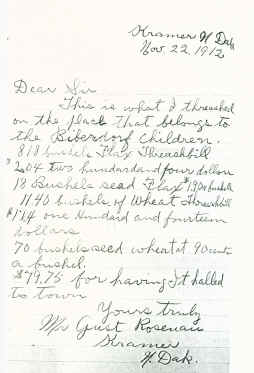 Kramer N Dak
Nov 22 1912
Dear Sir
This is what I threshed
on the place that belongs to
the Biberdorf Children.
818 bushels Flax Threshbill
$204 two hundred and four dollars
18 Bushels seed Flax $1.90 a bushel
1140 bushels of Wheat threshbill
$114 one Hundred and fourteen
dollars
70 bushels seed wheat at 90 cents
a bushel,
$79.75 for having it halled
to town
Yours truly
Mr Gust Rosenau
Kramer
N. Dak.